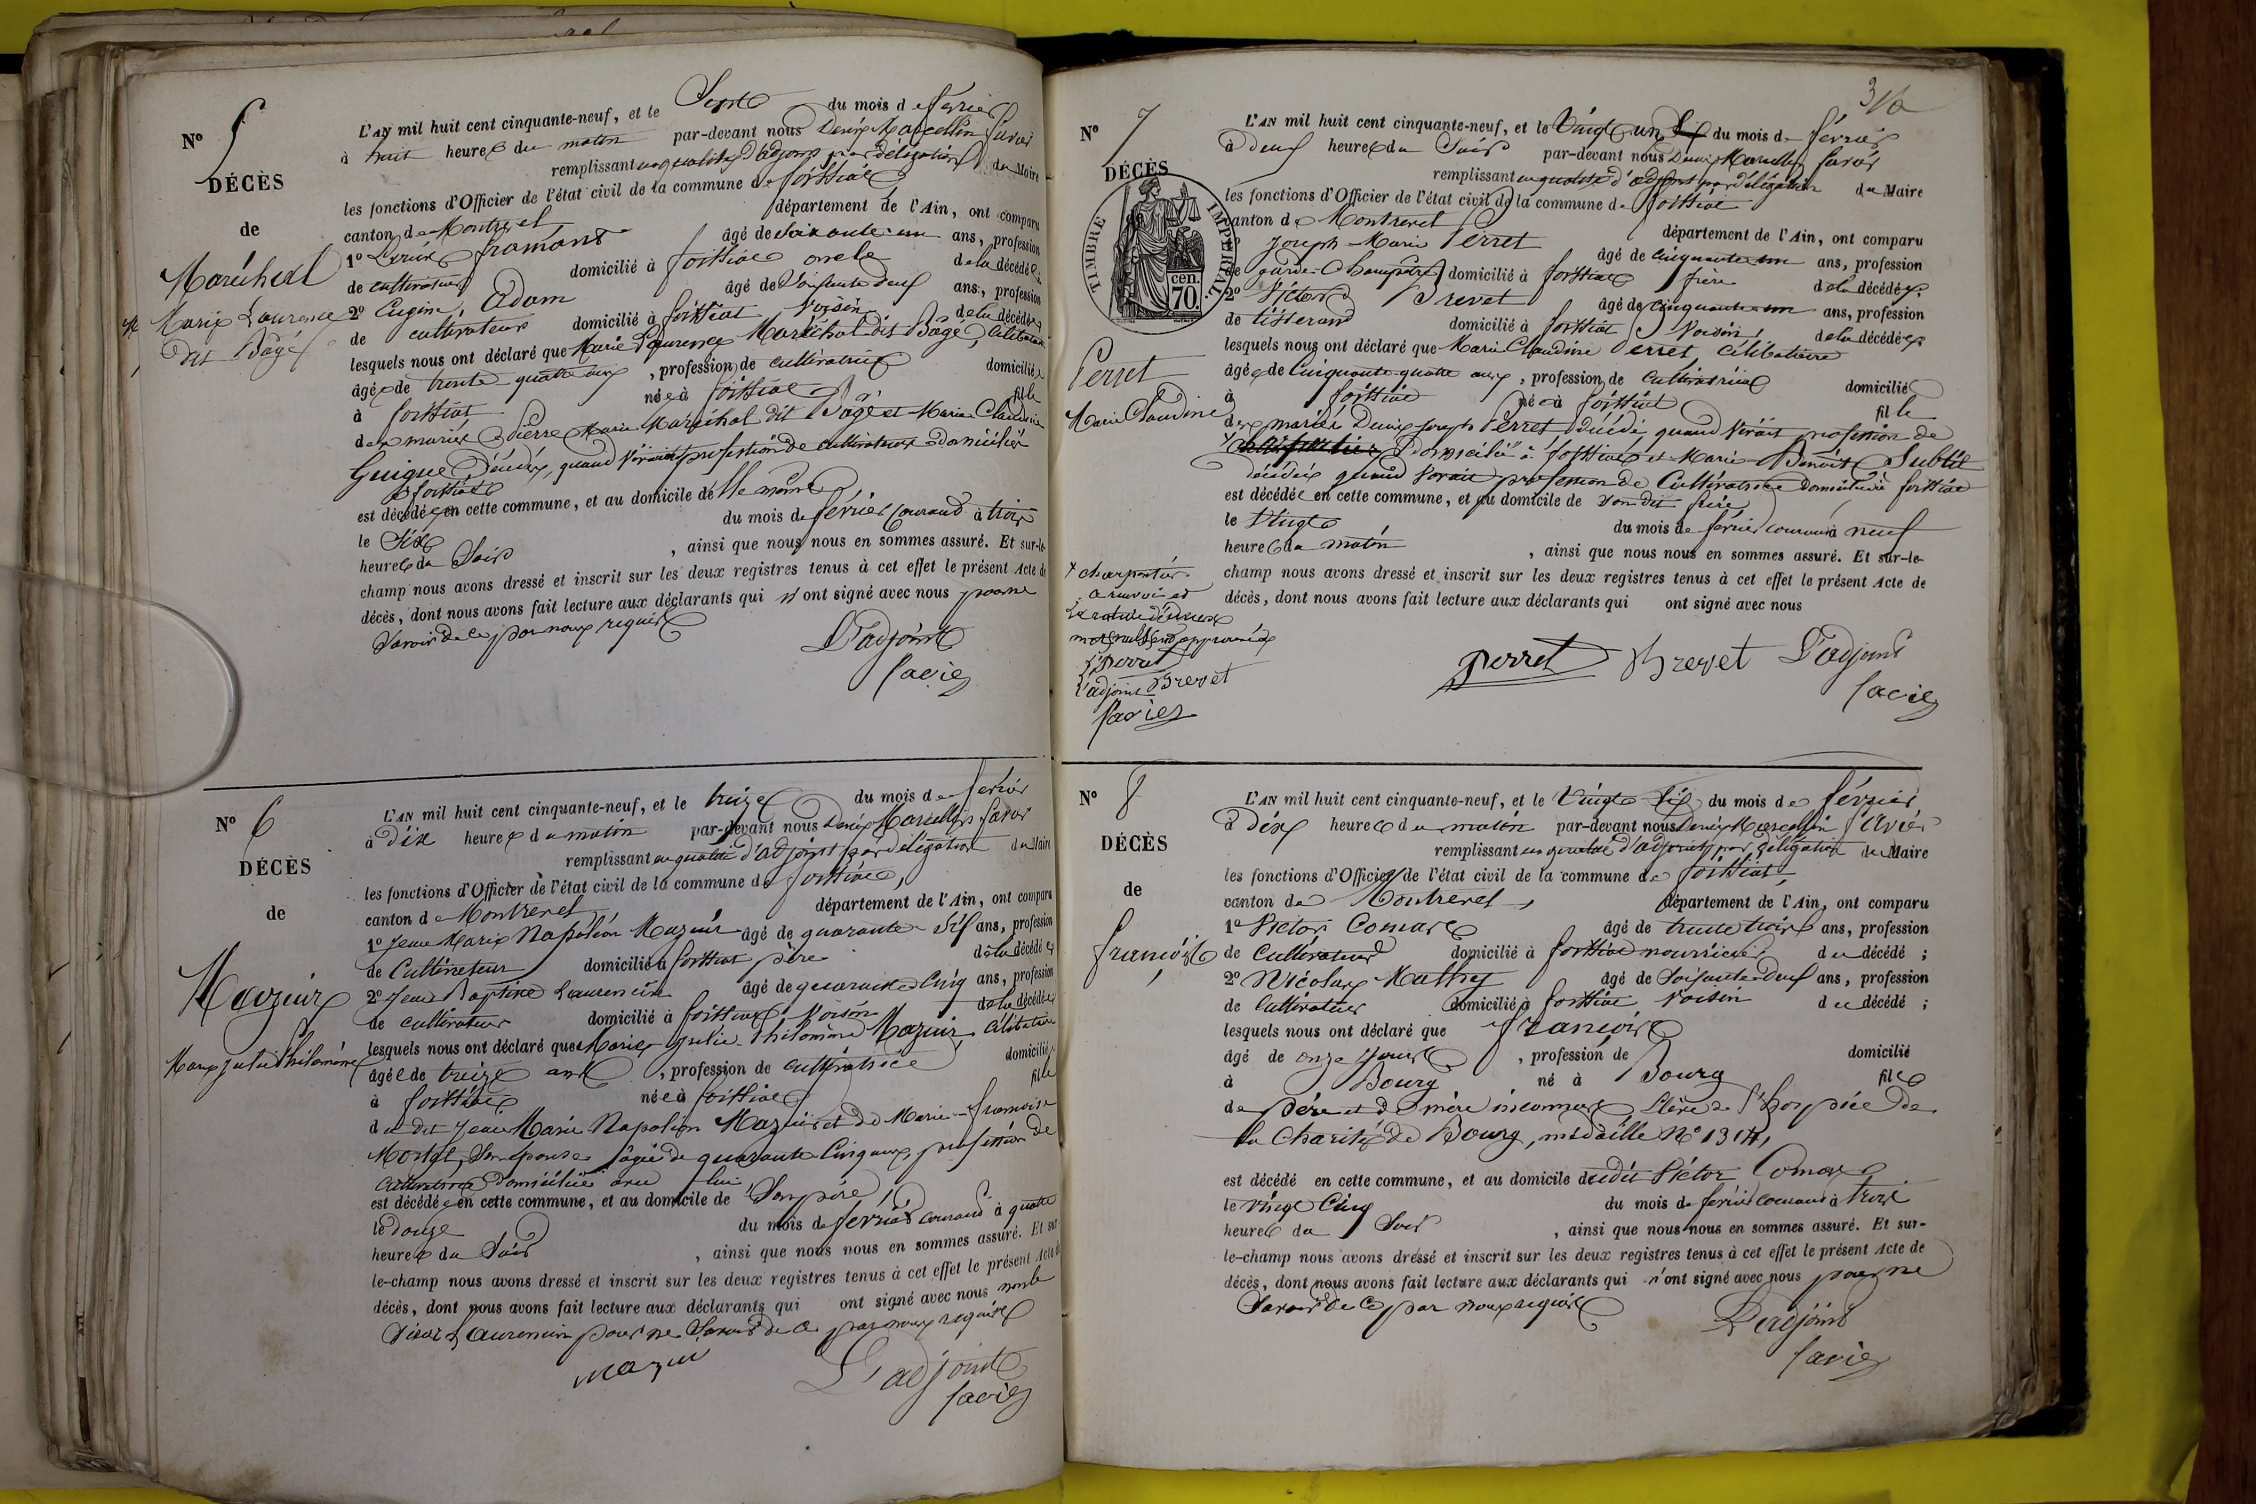 N° 5
DÉCÈS
de
Maréchal
Marie Laurence
dit Bagé
L'AN mil huit cent cinquante-neuf, et le Sept du mois de février
à huit heures du matin par-devant nous Denis Marcellin Favier
remplissant en qualité d'adjoint par délégation du Maire
les fonctions d'Officier de l'état civil de la commune de foissiat
canton de Montrevel département de l'Ain, ont comparu
1° framont âgé de soixante-un ans, profession
de cultivateur domicilié à foissiat oncle de la décédée;
2° Eugine Adam âgé de soixante deux ans, profession
de cultivateur domicilié à foissiat voisin de la décédée
lesquels nous ont déclaré que Marie Laurence Maréchal dit Bagé, célibataire
âgée de trente quatre ans, profession de cultivatrice domiciliée
à foissiat née à foissiat fille
des mariés Pierre Marie Maréchal dit Bagé et Marie Claudine
Guigue, décédés, quand vivaient profession de cultivateurs domiciliés
à foissiat
est décédée en cette commune, et au domicile d'elle même
le Six du mois de février courant à trois
heures du soir, ainsi que nous nous en sommes assuré. Et sur-le-
champ nous avons dressé et inscrit sur les deux registres tenus à cet effet le présent Acte de
décès, dont nous avons fait lecture aux déclarants qui n'ont signé avec nous pour ne
savoir de ce par nous requis
L'adjoint
favier
N° 6
DÉCÈS
de
Mazuir
Marie julie Philomène
L'AN mil huit cent cinquante-neuf, et le treize du mois de février
à dix heures du matin par-devant nous Denis Marcellin favier
remplissant en qualité d'adjoint par délégation du Maire
les fonctions d'Officier de l'état civil de la commune de foissiat,
canton de Montrevel département de l'Ain, ont comparu
1° Jean Marie Napoléon Mazuir âgé de quarante-six ans, profession
de Cultivateur domicilié à foissiat père de la décédée
2° Jean Baptiste Laurencin âgé de quarante Cinq ans, profession
de cultivateur domicilié à foissiat voisin de la décédée
lesquels nous ont déclaré que Marie Julie Philomène Mazuir, célibataire
âgée de treize ans, profession de cultivatrice domiciliée
à foissiat née à foissiat fille
du dit Jean Marie Napoléon Mazuir et de Marie-francoise
son épouse âgée de quarante Cinq ans, profession de
cultivatrice domiciliée avec lui
est décédée en cette commune, et au domicile de son père,
le douze du mois de février courant à quatre
heures du soir, ainsi que nous nous en sommes assuré. Et sur-
le-champ nous avons dressé et inscrit sur les deux registres tenus à cet effet le présent Acte de
décès, dont nous avons fait lecture aux déclarants qui ont signé avec nous non le
Laurencin pour ne savoir de ce par nous requis
mazuir
L'adjoint
favier
N° 7
DÉCÈS
de
TIMBRE IMPERIAL.
70 cen.
Perret
Marie Claudine
+ charpentier
a renvoi et
La rature de deux
mots nuls approuvés
Perret
L'adjoint Brevet
favier
L'AN mil huit cent cinquante-neuf, et le Vingt un du mois de février
à deux heures du soir par-devant nous Denis Marcellin favier
remplissant en qualité d'adjoint par délégation du Maire
les fonctions d'Officier de l'état civil de la commune de foissiat
canton de Montrevel département de l'Ain, ont comparu
1° Joseph-Marie Perret âgé de cinquante-un ans, profession
de garde-Champêtre domicilié à foissiat frère de la décédée;
2° Victor Brevet âgé de cinquante-un ans, profession
de tisserand domicilié à foissiat voisin, de la décédée;
lesquels nous ont déclaré que Marie Claudine Perret, célibataire
âgée de Cinquante quatre ans, profession de cultivatrice domiciliée
à foissiat née à foissiat fille
des mariés Denis Joseph Perret décédé, quand vivait profession de
+ domicilié à foissiat et Marie-Benoite Subtil
décédée quand vivait profession de Cultivatrice domiciliée foissiat
est décédée en cette commune, et au domicile de son dit frère
le Vingt du mois de février courant à neuf
heures du matin, ainsi que nous nous en sommes assuré. Et sur-le-
champ nous avons dressé et inscrit sur les deux registres tenus à cet effet le présent Acte de
décès, dont nous avons fait lecture aux déclarants qui ont signé avec nous
Perret Brevet L'adjoint
favier
N° 8
DÉCÈS
de
françois
L'AN mil huit cent cinquante-neuf, et le Vingt six du mois de février
à dix heures du matin par-devant nous Denis Marcellin favier
remplissant en qualité d'adjoint par délégation du Maire
les fonctions d'Officier de l'état civil de la commune de foissiat,
canton de Montrevel, département de l'Ain, ont comparu
1° Victor Comare âgé de trente trois ans, profession
de Cultivateur domicilié à foissiat nourricier du décédé;
2° Nicolas Mathey âgé de Soixante-deux ans, profession
de Cultivateur domicilié à foissiat voisin du décédé;
lesquels nous ont déclaré que françois
âgé de onze jours, profession de domicilié
à Bourg né à Bourg fils
de père et de mère inconnus, élève de l'hospice de
la Charité de Bourg, médaille N° 1314,
est décédé en cette commune, et au domicile dudit Victor Comare
le vingt Cinq du mois de février courant à trois
heures du soir, ainsi que nous nous en sommes assuré. Et sur-
le-champ nous avons dressé et inscrit sur les deux registres tenus à cet effet le présent Acte de
décès, dont nous avons fait lecture aux déclarants qui n'ont signé avec nous pour ne
savoir de ce par nous requis
L'adjoint
favier